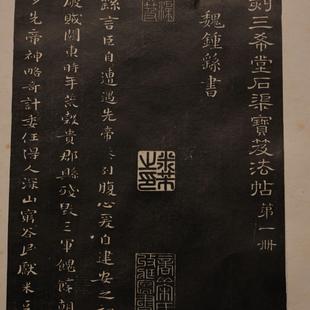 刻三希堂石渠寶笈法帖 第一冊
魏鍾繇書
繇言臣自遭遇先帝忝列腹心爰自建安之初
破賊關東時年荒穀貴郡縣殘毀三軍餽饟朝
先帝神略奇計委任得人深山窮谷民獻米豆